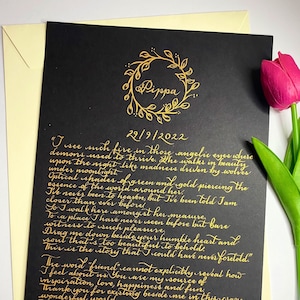 Pippa
29/9/2022
"I see such fire in those angelic eyes where
demons used to thrive. She walks in beauty
upon the night like madness driven by wolves
under moonlight.
Optical shades of green and gold piercing the
essence of the world around her.
I've never been to heaven, but I've been told I am
closer than ever before
So I walk here amongst her measure,
to a place I have never seen before but bare
witness to such pleasure.
Drag me down beside your humble heart and
soul that's too beautiful to behold;
This is the story that I could have never foretold."
The word 'friend' cannot explicitly reveal how
I feel about you. You're my source of
inspiration, love, happiness and fire
Thank you for existing beside me in this crazy,
wonderful world